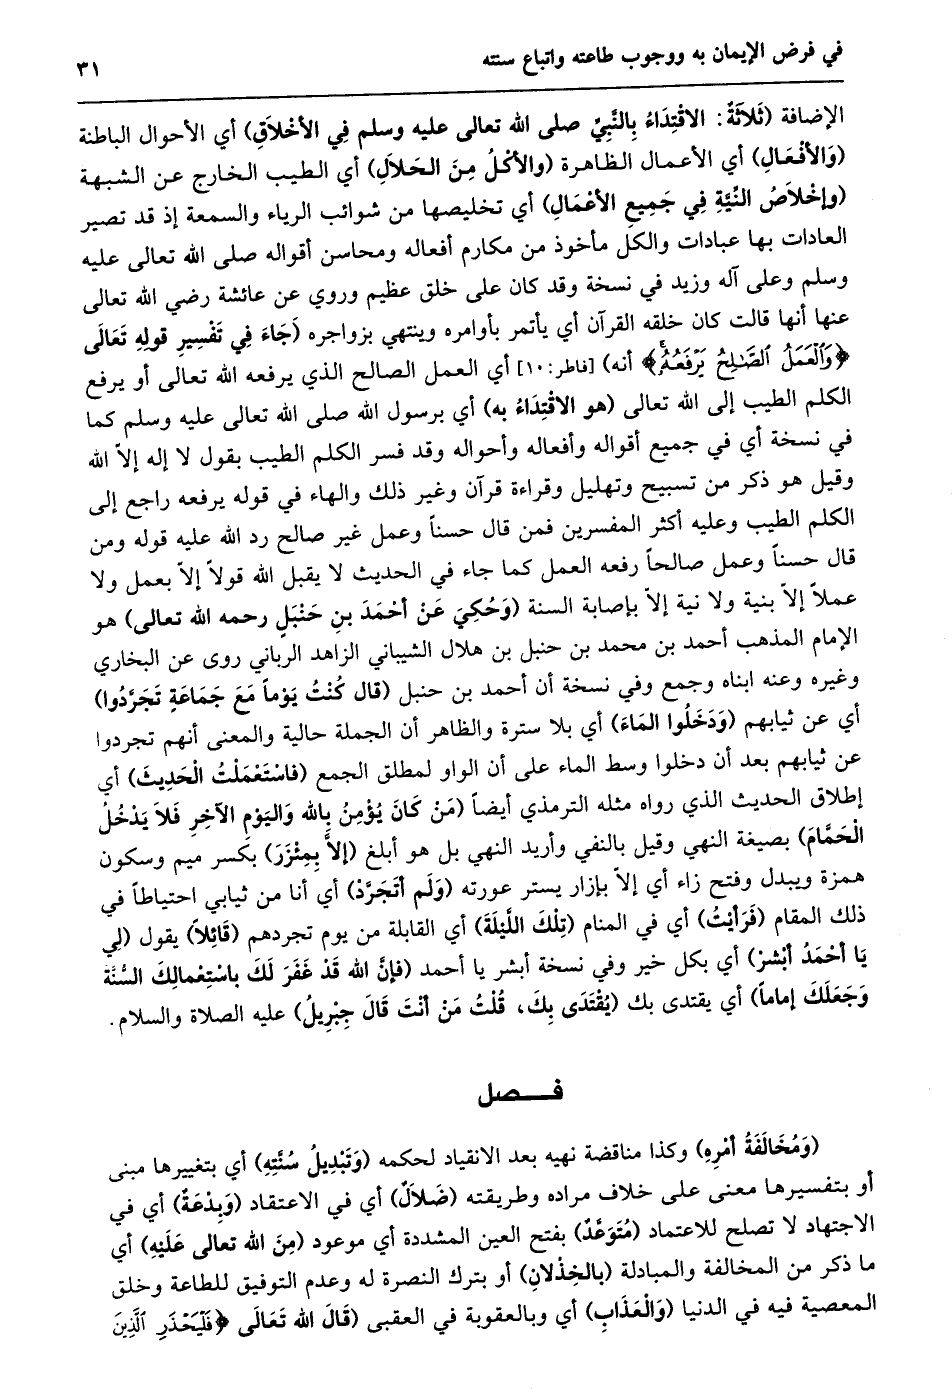 في فرض الإيمان به ووجوب طاعته واتباع سنته ٣١
الإضافة (ثَلاَثَةٌ: الاقْتِدَاءُ بِالنَّبِيِّ صلى الله تعالى عليه وسلم فِي الأخْلاَقِ) أي الأحوال الباطنة
(وَالأفْعَالِ) أي الأعمال الظاهرة (والأكْلُ مِنَ الحَلاَلِ) أي الطيب الخارج عن الشبهة
(وإخْلاَصُ النِّيَّةِ فِي جَمِيعِ الأعْمَالِ) أي تخليصها من شوائب الرياء والسمعة إذ قد تصير
العادات بها عبادات والكل مأخوذ من مكارم أفعاله ومحاسن أقواله صلى الله تعالى عليه
وسلم وعلى آله وزيد في نسخة وقد كان على خلق عظيم وروي عن عائشة رضي الله تعالى
عنها أنها قالت كان خلقه القرآن أي يأتمر بأوامره وينتهي بزواجره (جَاءَ فِي تَفْسِيرِ قولِهِ تَعَالَى
﴿وَٱلْعَمَلُ ٱلصَّٰلِحُ يَرْفَعُهُۥ﴾ أنه) [فاطر: ١٠] أي العمل الصالح الذي يرفعه الله تعالى أو يرفع
الكلم الطيب إلى الله تعالى (هو الاقْتِدَاءُ به) أي برسول الله صلى الله تعالى عليه وسلم كما
في نسخة أي في جميع أقواله وأفعاله وأحواله وقد فسر الكلم الطيب بقول لا إله إلاّ الله
وقيل هو ذكر من تسبيح وتهليل وقراءة قرآن وغير ذلك والهاء في قوله يرفعه راجع إلى
الكلم الطيب وعليه أكثر المفسرين فمن قال حسناً وعمل غير صالح رد الله عليه قوله ومن
قال حسناً وعمل صالحاً رفعه العمل كما جاء في الحديث لا يقبل الله قولاً إلاّ بعمل ولا
عملاً إلاّ بنية ولا نية إلاّ بإصابة السنة (وَحُكِيَ عَنْ أحْمَدَ بنِ حَنْبَلٍ رحمه الله تعالى) هو
الإمام المذهب أحمد بن محمد بن حنبل بن هلال الشيباني الزاهد الرباني روى عن البخاري
وغيره وعنه ابناه وجمع وفي نسخة أن أحمد بن حنبل (قال كُنْتُ يَوْماً مَعَ جَمَاعَةٍ تَجَرَّدُوا)
أي عن ثيابهم (وَدَخَلُوا المَاءَ) أي بلا سترة والظاهر أن الجملة حالية والمعنى أنهم تجردوا
عن ثيابهم بعد أن دخلوا وسط الماء على أن الواو لمطلق الجمع (فاسْتَعْمَلْتُ الْحَدِيثَ) أي
إطلاق الحديث الذي رواه مثله الترمذي أيضاً (مَنْ كَانَ يُؤْمِنُ بِالله وَاليَوْمِ الآخِرِ فَلاَ يَدْخُلُ
الْحَمَّامَ) بصيغة النهي وقيل بالنفي وأريد النهي بل هو أبلغ (إلاَّ بِمِئْزَرَ) بكسر ميم وسكون
همزة ويبدل وفتح زاء أي إلاّ بإزار يستر عورته (وَلَم أتَجَرَّدْ) أي أنا من ثيابي احتياطاً في
ذلك المقام (فَرَأيْتُ) أي في المنام (تِلْكَ اللَّيْلَةَ) أي القابلة من يوم تجردهم (قَائِلاً) يقول (لِي
يَا أحْمَدُ أبْشِرْ) أي بكل خير وفي نسخة أبشر يا أحمد (فَإنَّ الله قَدْ غَفَرَ لَكَ باسْتِعْمالِكَ السُّنَّةَ
وَجَعَلَكَ إماماً) أي يقتدى بك (يُقْتَدَى بِكَ، قُلْتُ مَنْ أنْتَ قَالَ جِبْرِيلُ) عليه الصلاة والسلام.
فــصل
(وَمُخَالَفَةُ أمْرِهِ) وكذا مناقضة نهيه بعد الانقياد لحكمه (وَتَبْدِيلُ سُنَّتِهِ) أي بتغييرها مبنى
أو بتفسيرها معنى على خلاف مراده وطريقته (ضَلاَلٌ) أي في الاعتقاد (وَبِدْعَةٌ) أي في
الاجتهاد لا تصلح للاعتماد (مُتَوَعَّدٌ) بفتح العين المشددة أي موعود (مِنَ الله تعالى عَلَيْهِ) أي
ما ذكر من المخالفة والمبادلة (بالخِذْلانِ) أو بترك النصرة له وعدم التوفيق للطاعة وخلق
المعصية فيه في الدنيا (وَالْعَذَابِ) أي وبالعقوبة في العقبى (قَالَ الله تَعَالَى ﴿فَلْيَحْذَرِ ٱلَّذِينَ